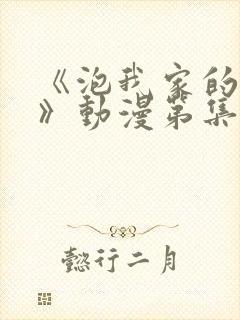 《泡我家的
》動漫第集
懿行二月